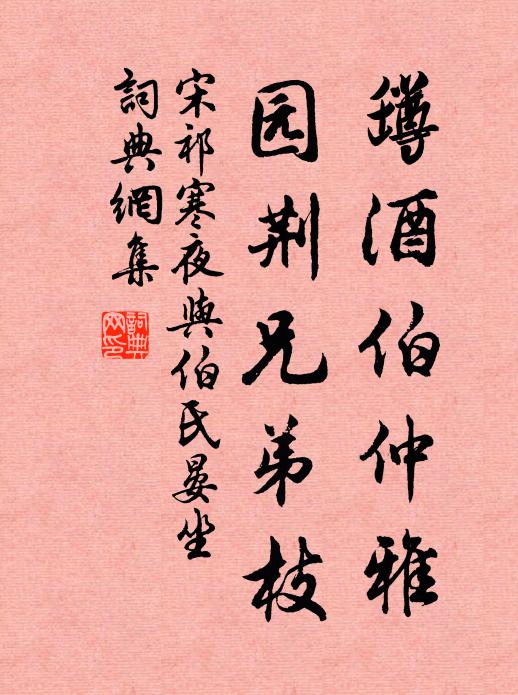 罇酒伯仲雅
园荆兄弟枝
宋祁寒夜與伯氏晏坐
詞典網集
詞典网印